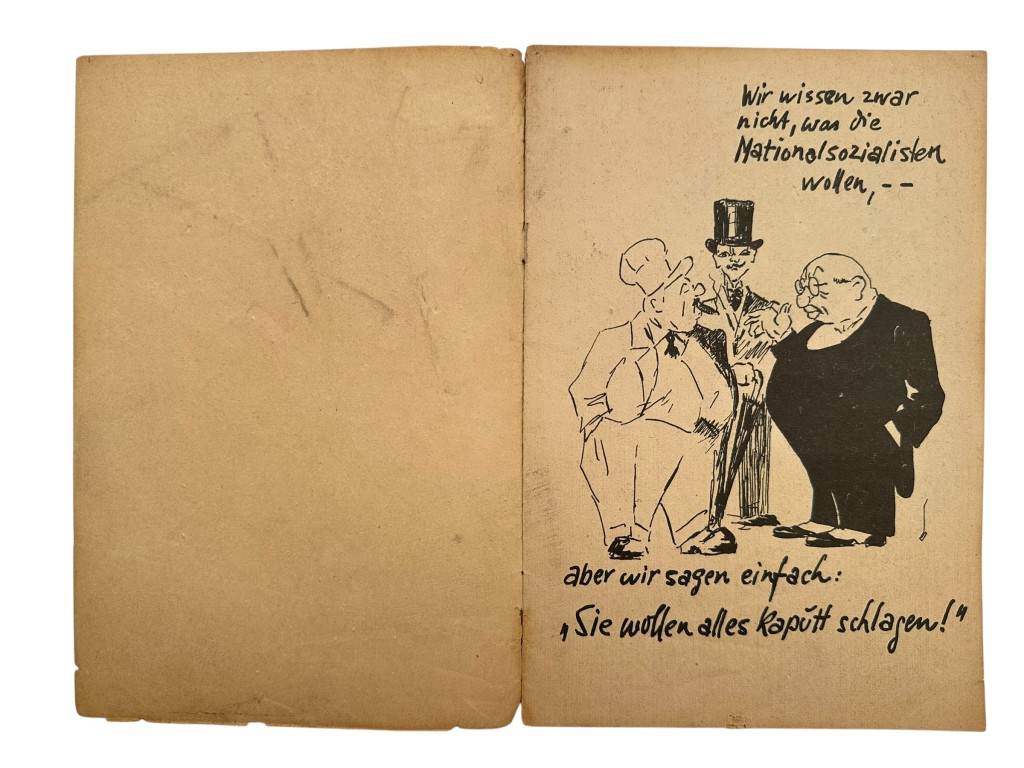 Wir wissen zwar
nicht, was die
Nationalsozialisten
wollen, --
aber wir sagen einfach:
„Sie wollen alles kaputt schlagen!"